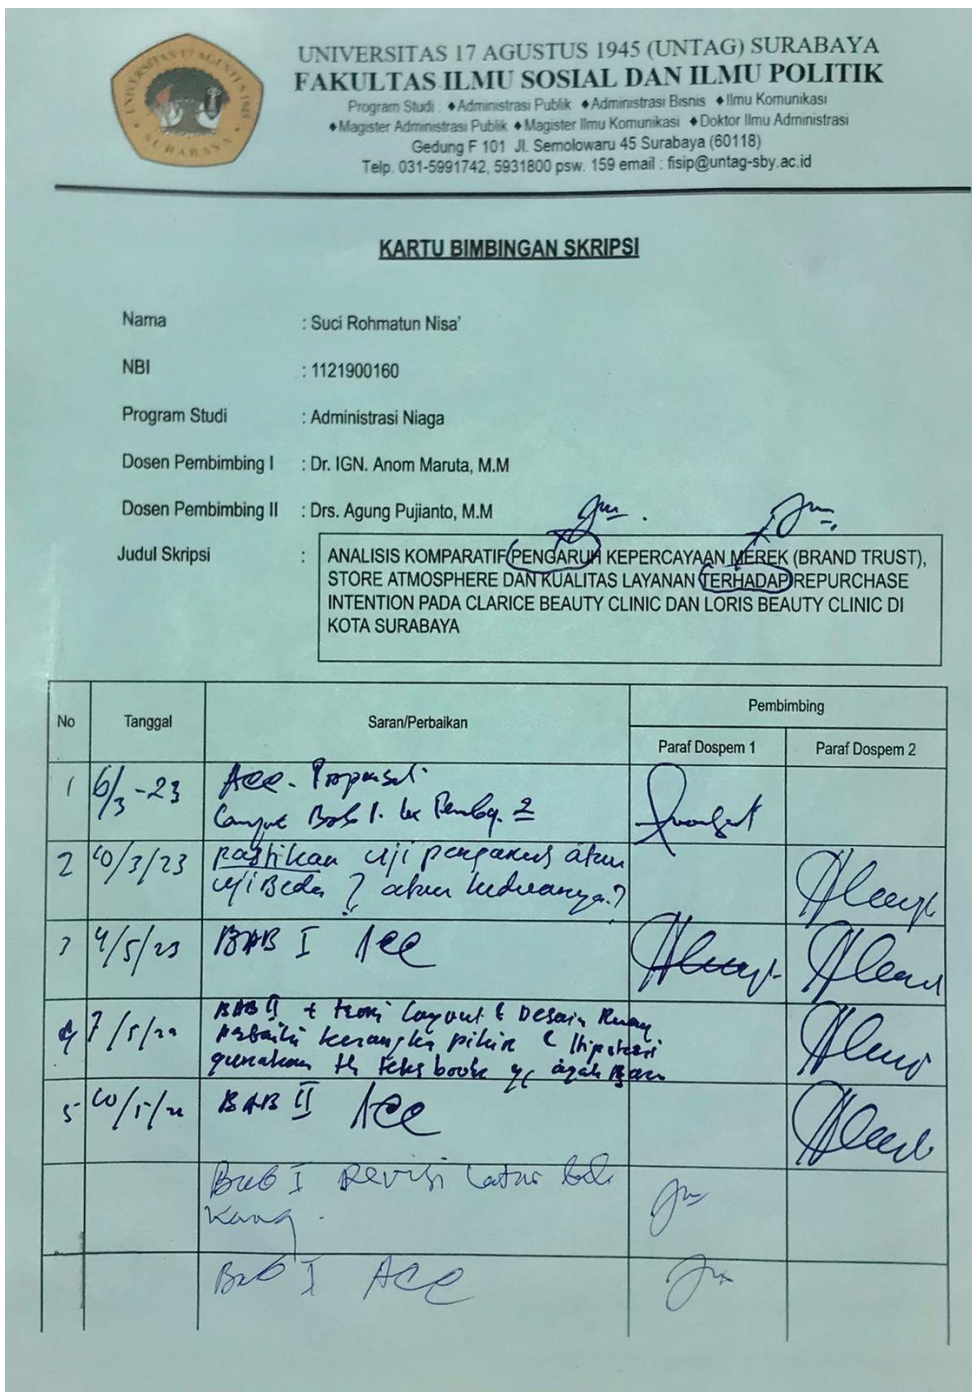 UNIVERSITAS 17 AGUSTUS 1945
SURABAYA
UNIVERSITAS 17 AGUSTUS 1945 (UNTAG) SURABAYA
FAKULTAS ILMU SOSIAL DAN ILMU POLITIK
Program Studi : ◆Administrasi Publik ◆Administrasi Bisnis ◆Ilmu Komunikasi
◆Magister Administrasi Publik ◆Magister Ilmu Komunikasi ◆Doktor Ilmu Administrasi
Gedung F 101 Jl. Semolowaru 45 Surabaya (60118)
Telp. 031-5991742, 5931800 psw. 159 email : fisip@untag-sby.ac.id
KARTU BIMBINGAN SKRIPSI
Nama : Suci Rohmatun Nisa'
NBI : 1121900160
Program Studi : Administrasi Niaga
Dosen Pembimbing I : Dr. IGN. Anom Maruta, M.M
Dosen Pembimbing II : Drs. Agung Pujianto, M.M
Judul Skripsi : ANALISIS KOMPARATIF PENGARUH KEPERCAYAAN MEREK (BRAND TRUST),
STORE ATMOSPHERE DAN KUALITAS LAYANAN TERHADAP REPURCHASE
INTENTION PADA CLARICE BEAUTY CLINIC DAN LORIS BEAUTY CLINIC DI
KOTA SURABAYA
No Tanggal Saran/Perbaikan Pembimbing
Paraf Dospem 1 Paraf Dospem 2
1 6/3-23 Acc. Proposal
Lanjut Bab 1. ke Pembg. 2
2 10/3/23 pastikan uji pengaruh atau
uji Beda ? atau keduanya.?
3 4/5/23 BAB I Acc
4 7/5/23 BAB II + teori layout & Desain Ruang
perbaiki kerangka pikir & Hipotesis
gunakan teks book yg
5 10/5/23 BAB II Acc
Bab I Revisi Latar bela
kang.
Bab I ACC